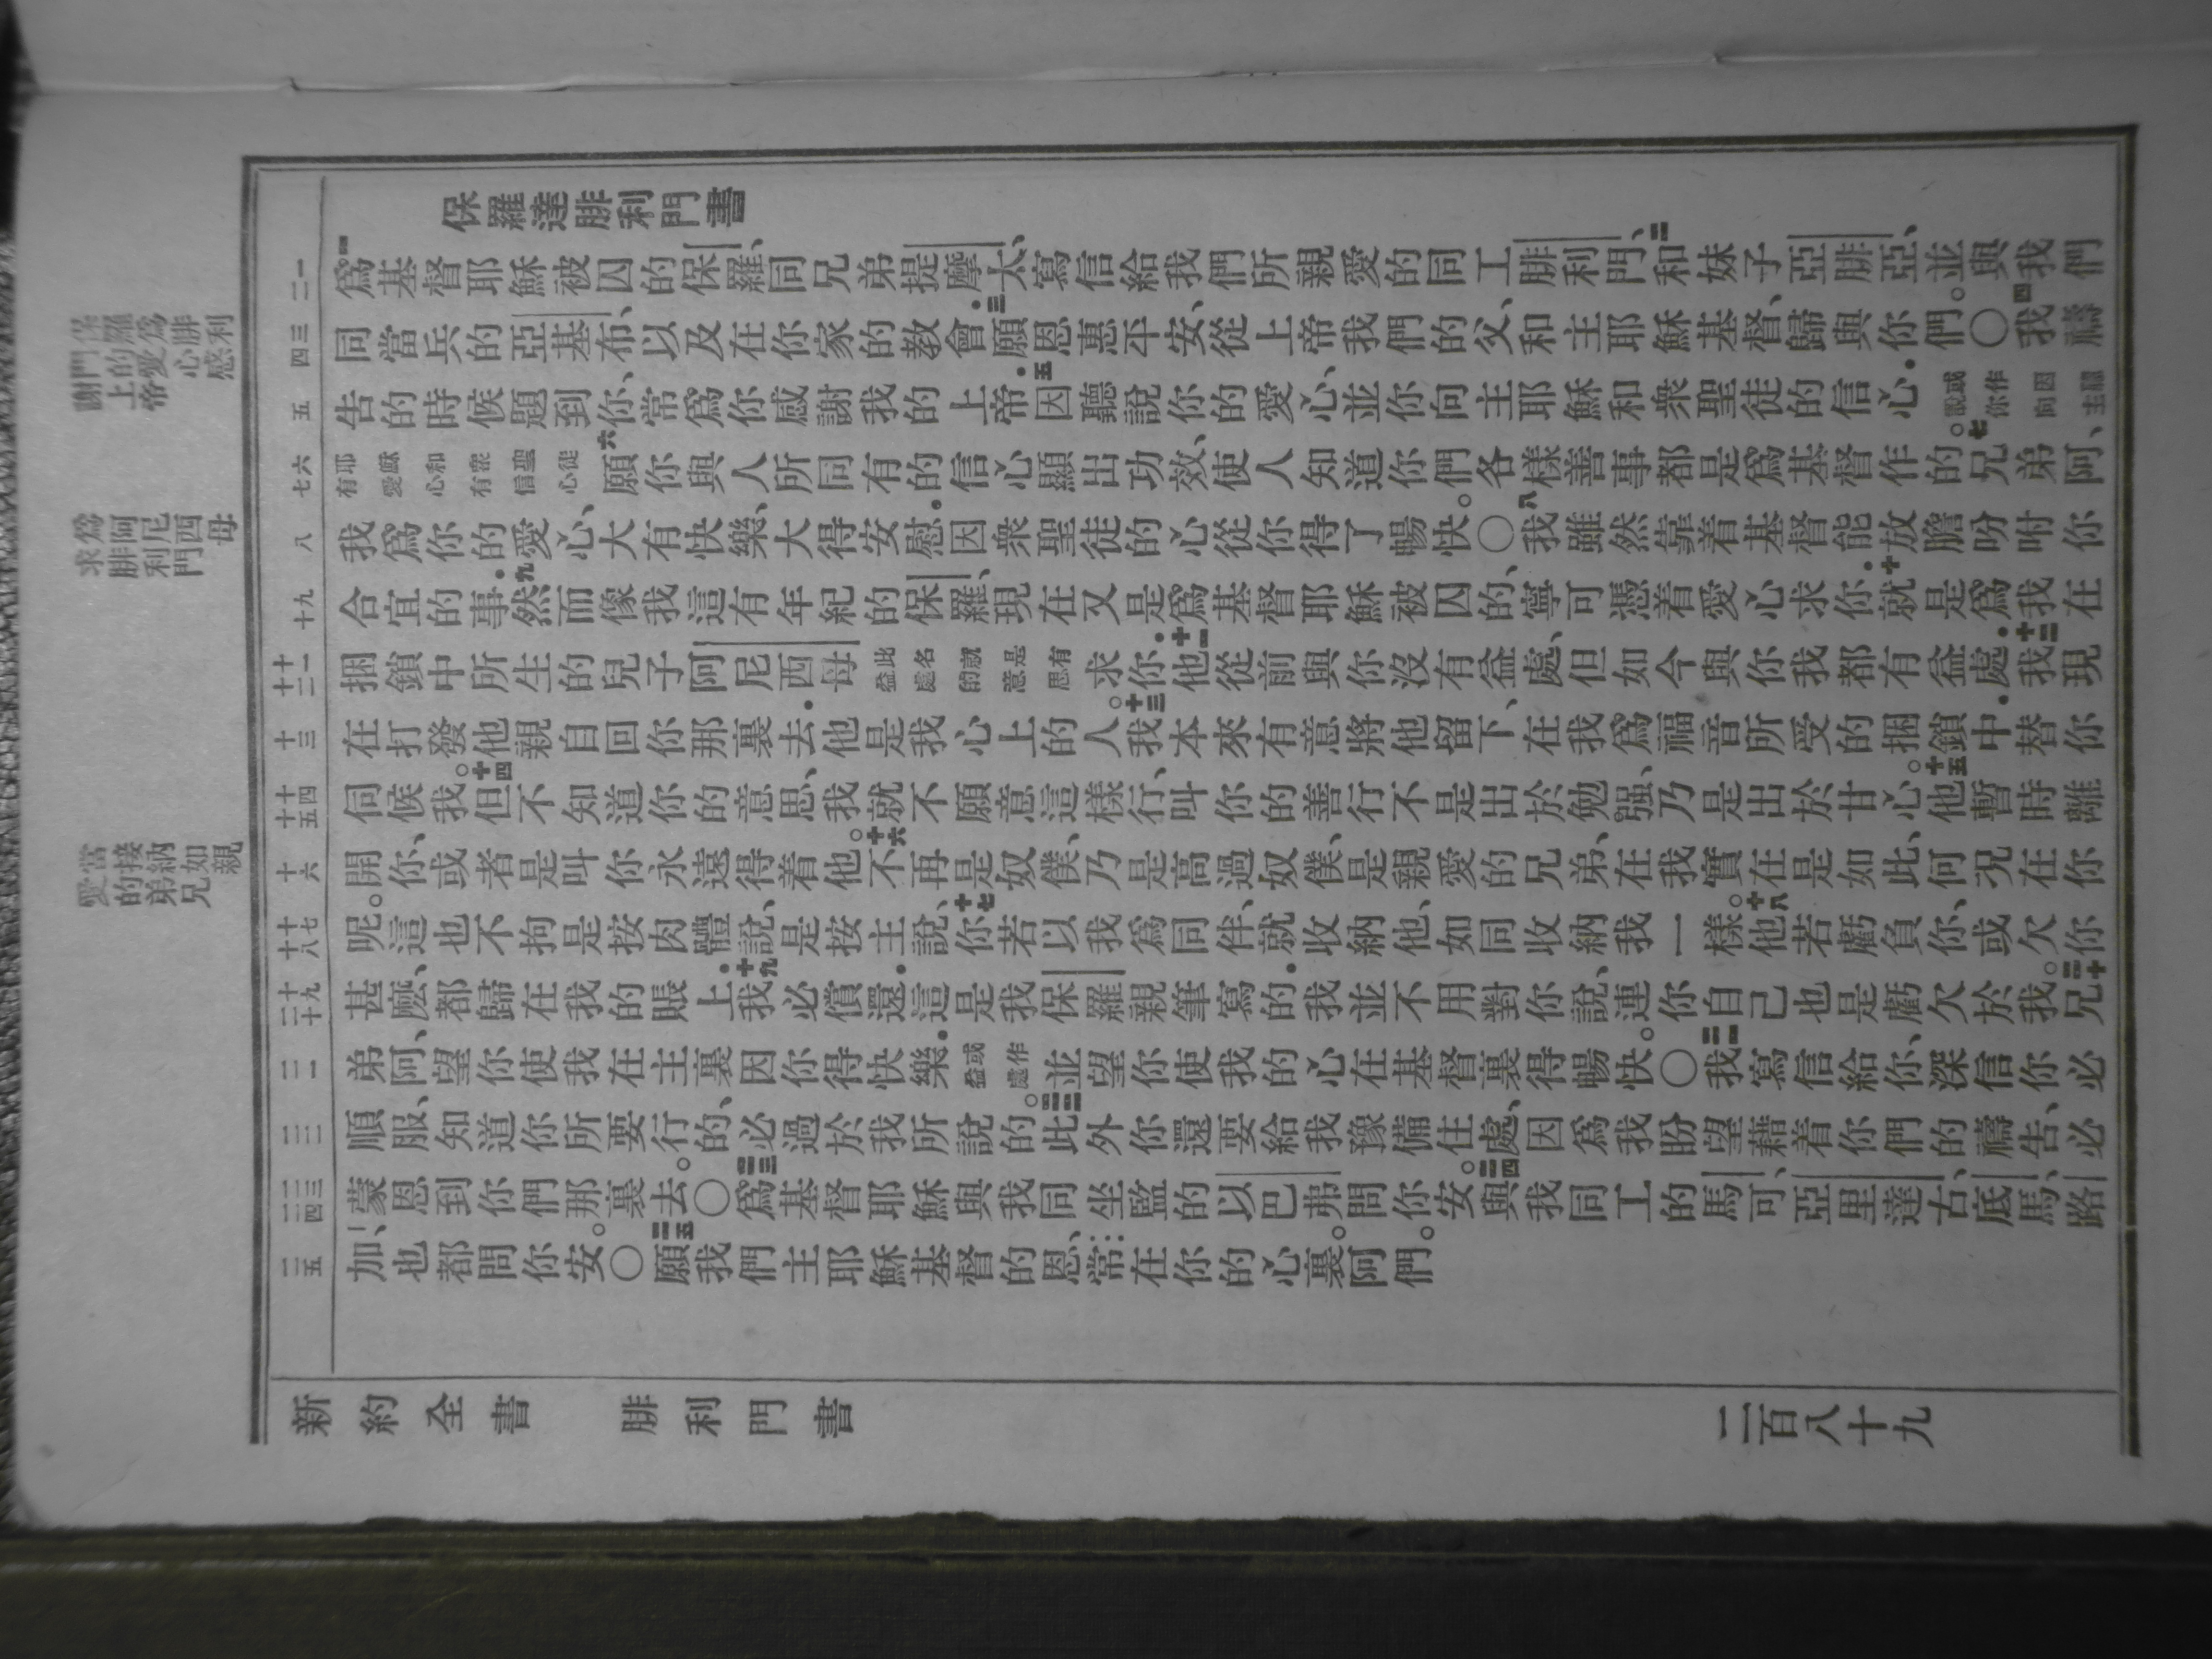 保羅達腓利門書
爲基督耶穌被囚的保羅、同兄弟提摩太、寫信給我們所親愛的同工腓利門、二和妹子亞腓亞、並與我們
同當兵的亞基布、以及在你家的教會.三願恩惠平安、從上帝我們的父、和主耶穌基督、歸與你們。〇四我禱
告的時候題到你、常爲你感謝我的上帝.五因聽說你的愛心、並你向主耶穌和衆聖徒的信心.或作因聽說你向主
耶穌和衆聖徒有愛心有信心六願你與人所同有的信心顯出功效、使人知道你們各樣善事都是爲基督作的。七兄弟阿、
我爲你的愛心、大有快樂、大得安慰.因衆聖徒的心從你得了暢快。〇八我雖然靠着基督能放膽吩咐你
合宜的事.九然而像我這有年紀的保羅、現在又是爲基督耶穌被囚的、寧可憑着愛心求你.十就是爲我在
捆鎖中所生的兒子阿尼西母此名就是有益處的意思求你.十一他從前與你沒有益處、但如今與你我都有益處.十二我現
在打發他親自回你那裏去.他是我心上的人。十三我本來有意將他留下、在我爲福音所受的捆鎖中.替你
伺候我。十四但不知道你的意思、我就不願意這樣行、叫你的善行不是出於勉强、乃是出於甘心。十五他暫時離
開你、或者是叫你永遠得着他。十六不再是奴僕、乃是高過奴僕、是親愛的兄弟、在我實在是如此、何況在你
呢。這也不拘是按肉體說、是按主說、十七你若以我爲同伴、就收納他、如同收納我一樣。十八他若虧負你、或欠你
甚麽、都歸在我的賬上.十九我必償還.這是我保羅親筆寫的.我並不用對你說、連你自己也是虧欠於我。二十兄
弟阿、望你使我在主裏因你得快樂.或作益處並望你使我的心在基督裏得暢快。〇二一我寫信給你、深信你必
順服、知道你所要行的、必過於我所說的。二二此外你還要給我豫備住處、因爲我盼望藉着你們的禱告、必
蒙恩到你們那裏去。〇二三爲基督耶穌與我同坐監的以巴弗問你安。二四與我同工的馬可、亞里達古、底馬、路
加、也都問你安。〇二五願我們主耶穌基督的恩、常在你的心裏。阿們。
新約全書 腓利門書 二百八十九
保羅爲腓利
門的愛心感
謝上帝
爲阿尼西母
求腓利門
當接納如親
愛的弟兄